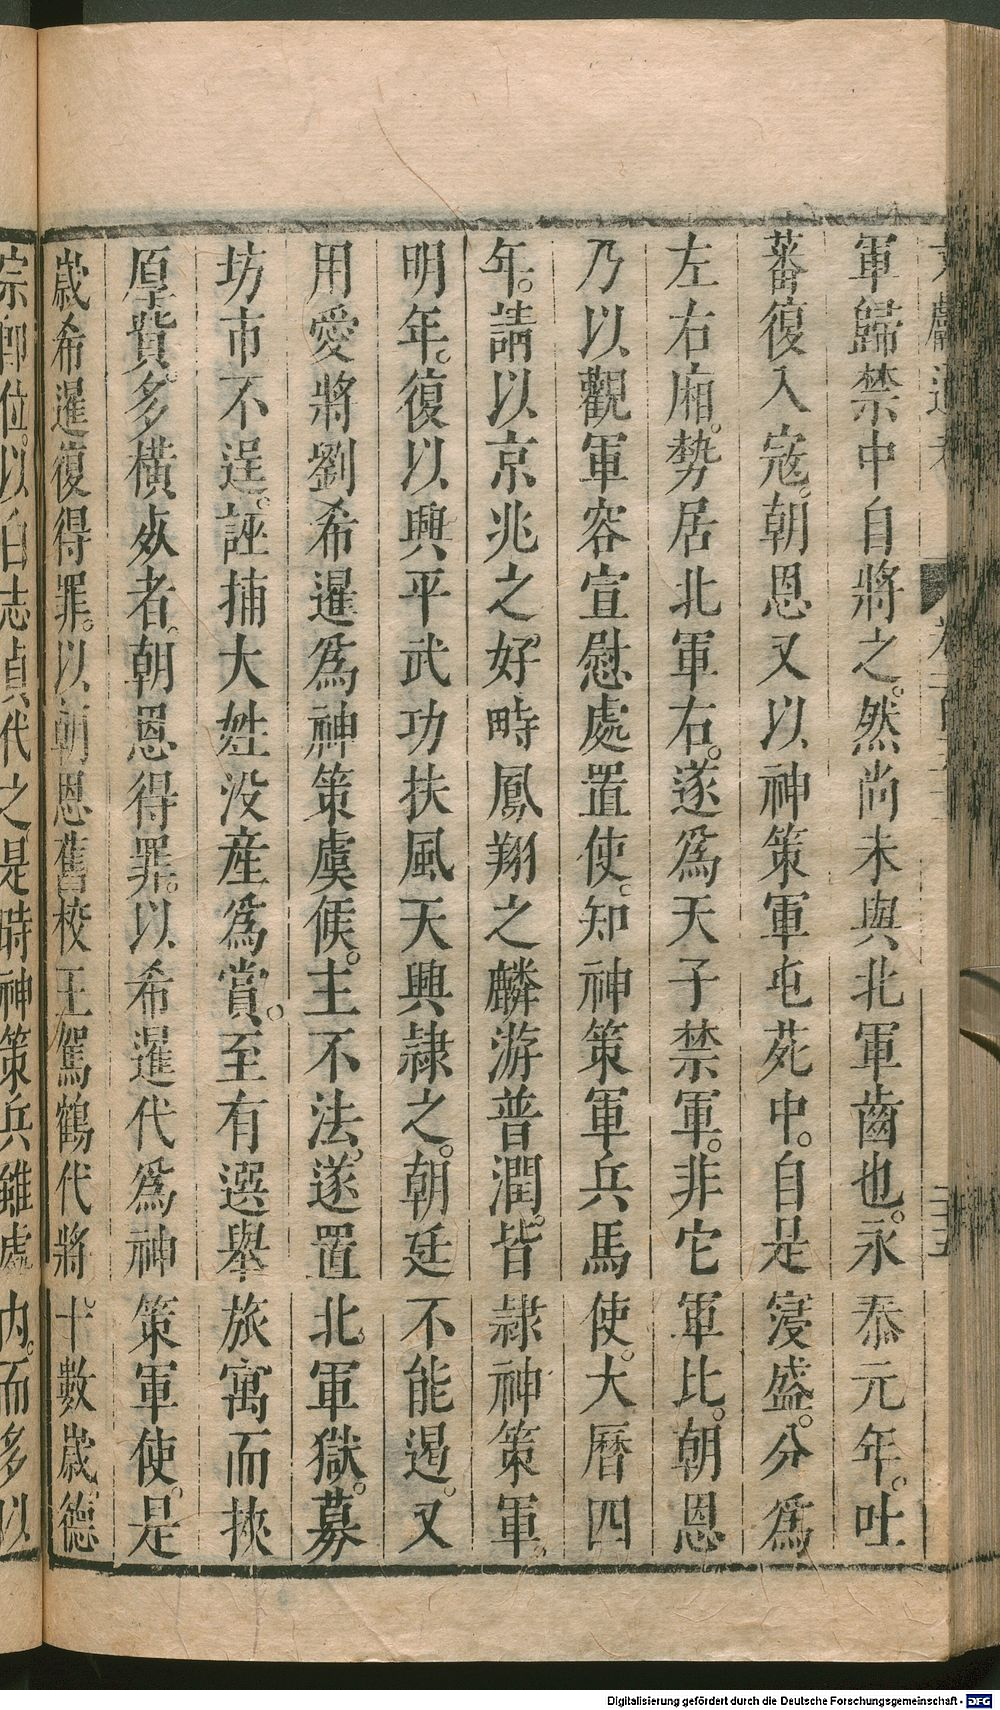 軍歸禁中自將之。然尚未與北軍齒也。永泰元年。吐
蕃復入寇。朝恩又以神策軍屯苑中。自是寖盛。分爲
左右廂。勢居北軍右。遂爲天子禁軍。非它軍比。朝恩
乃以觀軍容宣慰處置使。知神策軍兵馬使。大曆四
年。請以京兆之好畤鳳翔之麟游普潤。皆隷神策軍。
明年。復以興平武功扶風天興隷之。朝廷不能遏。又
用愛將劉希暹爲神策虞候。主不法。遂置北軍獄。募
坊市不逞。誣捕大姓没産爲賞。至有選舉旅寓而挾
厚貲。多橫死者。朝恩得罪。以希暹代爲神策軍使。是
歲希暹復得罪。以朝恩舊校王駕鶴代將。十數歲。德
宗即位。以白志貞代之是時神策兵雖處内。而多以
Digitalisierung gefördert durch die Deutsche Forschungsgemeinschaft - DFG